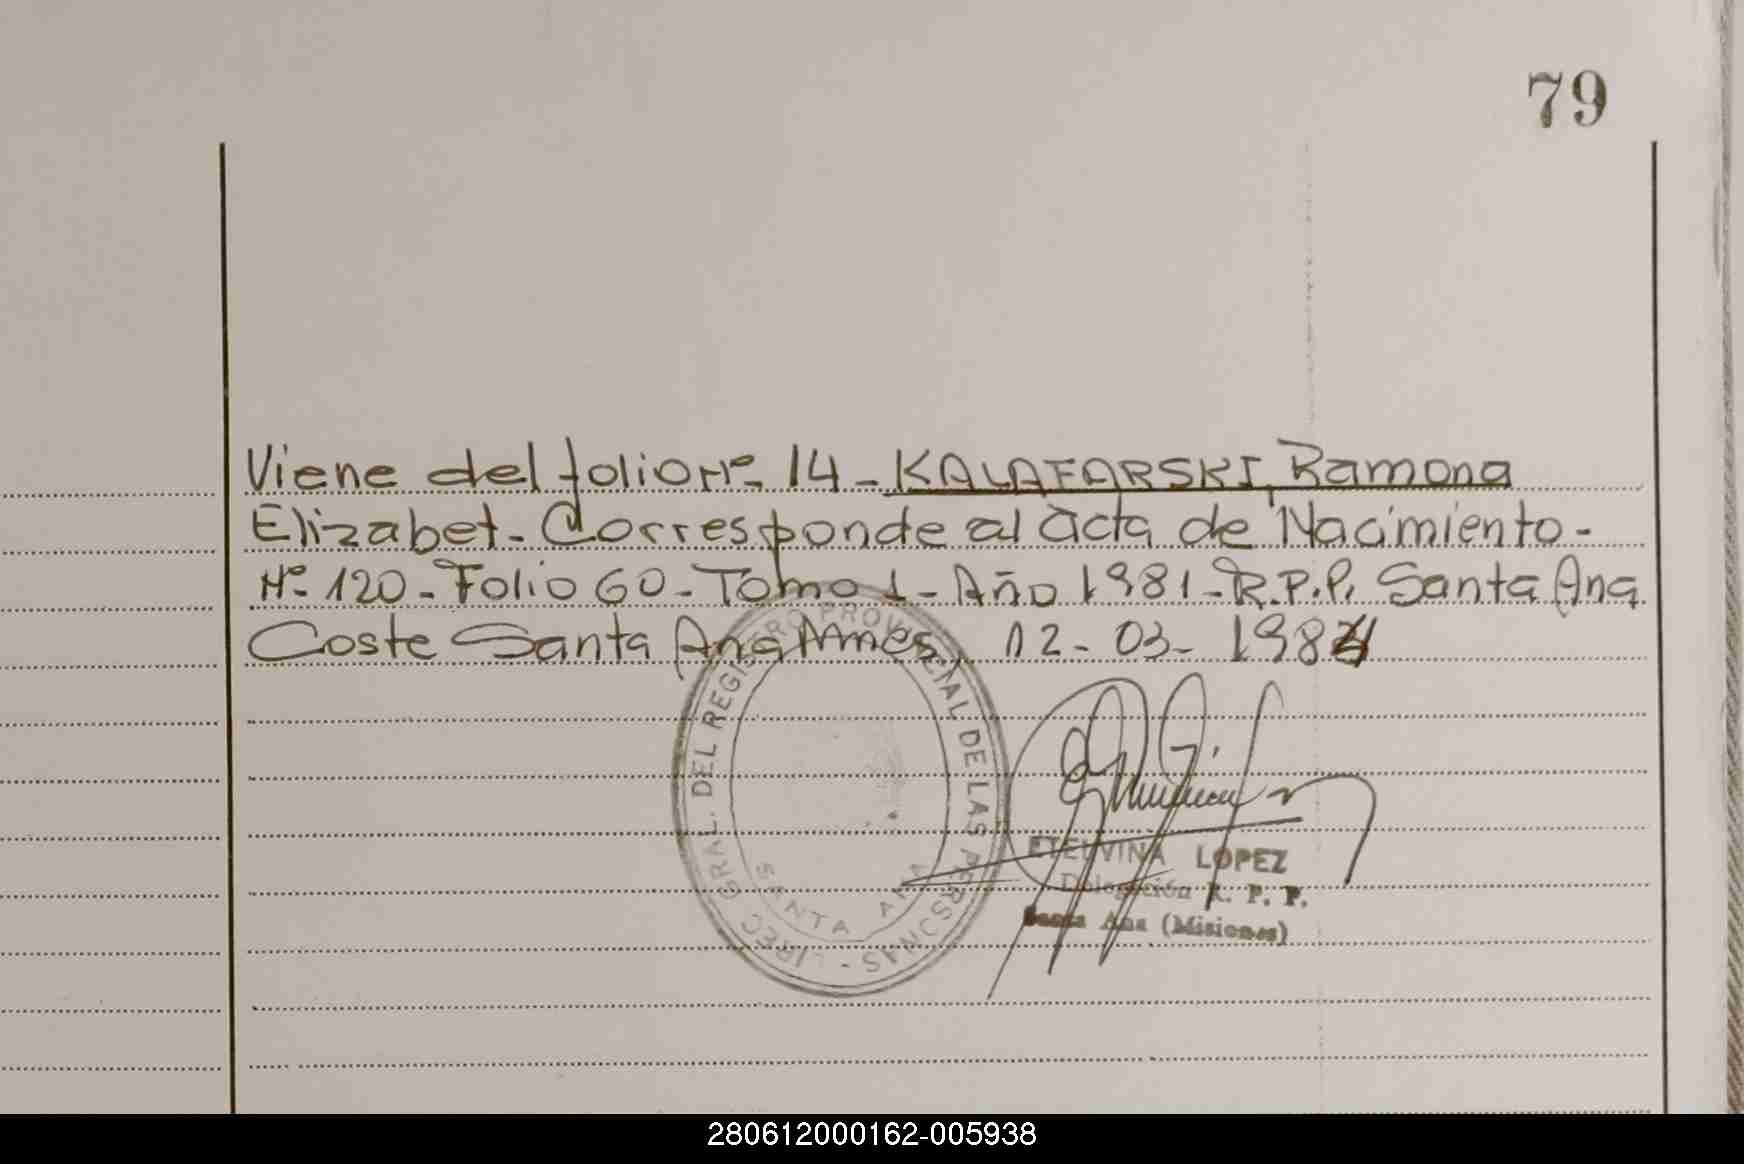 79
Viene del folio Nº 14 - KALAFARSKI, Ramona
Elizabet - Corresponde al acta de Nacimiento -
Nº 120 - Folio 60 - Tomo 1 - Año 1981 - R.P.P. Santa Ana
Coste Santa Ana Mnes, 12 - 03 - 198
DIREC GRAL. DEL REGISTRO PROVINCIAL DE LAS PERSONAS -
SANTA ANA
ETELVINA LOPEZ
Delegación R. P. P.
Santa Ana (Misiones)
280612000162-005938